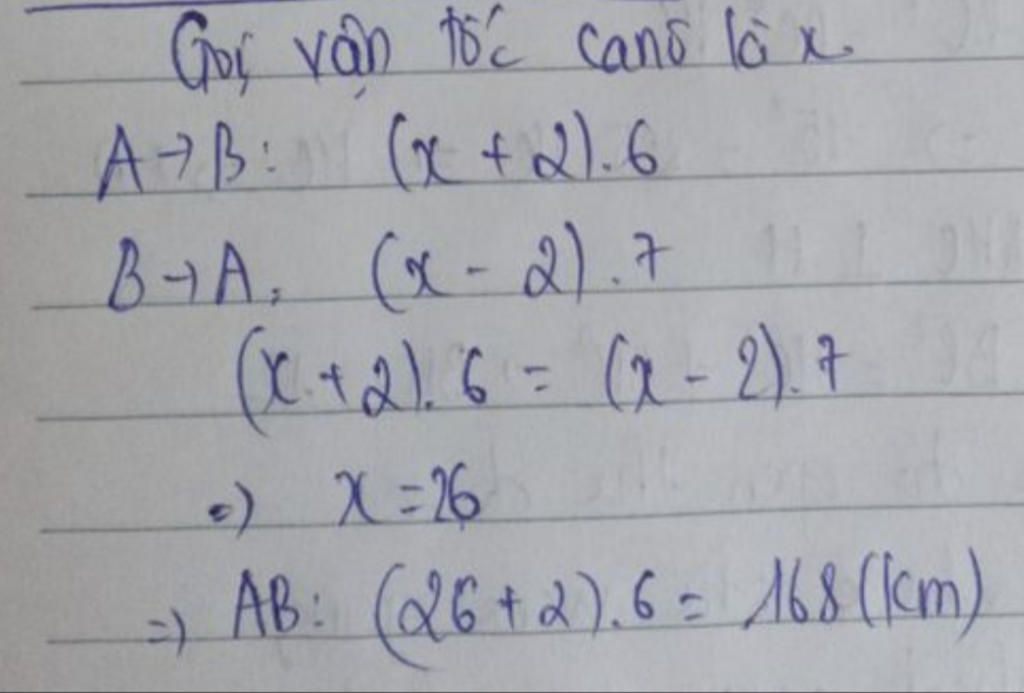 Gọi vận tốc canô là x.
A → B: (x + 2). 6
B → A: (x - 2). 7
(x + 2). 6 = (x - 2). 7
=) x = 26
=) AB: (26 + 2). 6 = 168 (km)